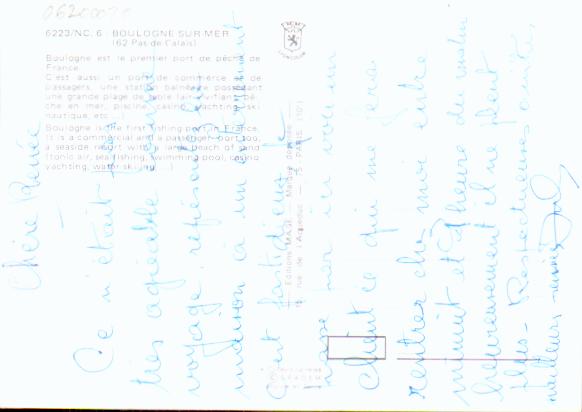 0620
6223/NC. 6 : BOULOGNE SUR MER
(62 Pas de Calais)
Boulogne est le premier port de pêche de
France.
C'est aussi un port de commerce et de
passagers, une station balnéaire possédant
une grande plage de sable (air vivifiant, pê-
che en mer, piscine, casino, yachting, ski
nautique, etc...)
Boulogne is the first fishing port in France.
It is a commercial and a passenger port too,
a seaside resort with a large beach of sand
(tonic air, sea fishing, swimming pool, casino
yachting, water skiing...)
Editions MAGE - Marque déposée
15, rue de l'Aqueduc - 75 - PARIS (10e)
Chère Renée
Ce n'était pas
très agréable
voyage
maison à un enterrement
C'est fastidieux
mer ici voir un
client ce qui me fera
rentrer chez moi entre
minuit et heure du matin
heureusement il ne pleut
plus - Respectueuses
meilleurs